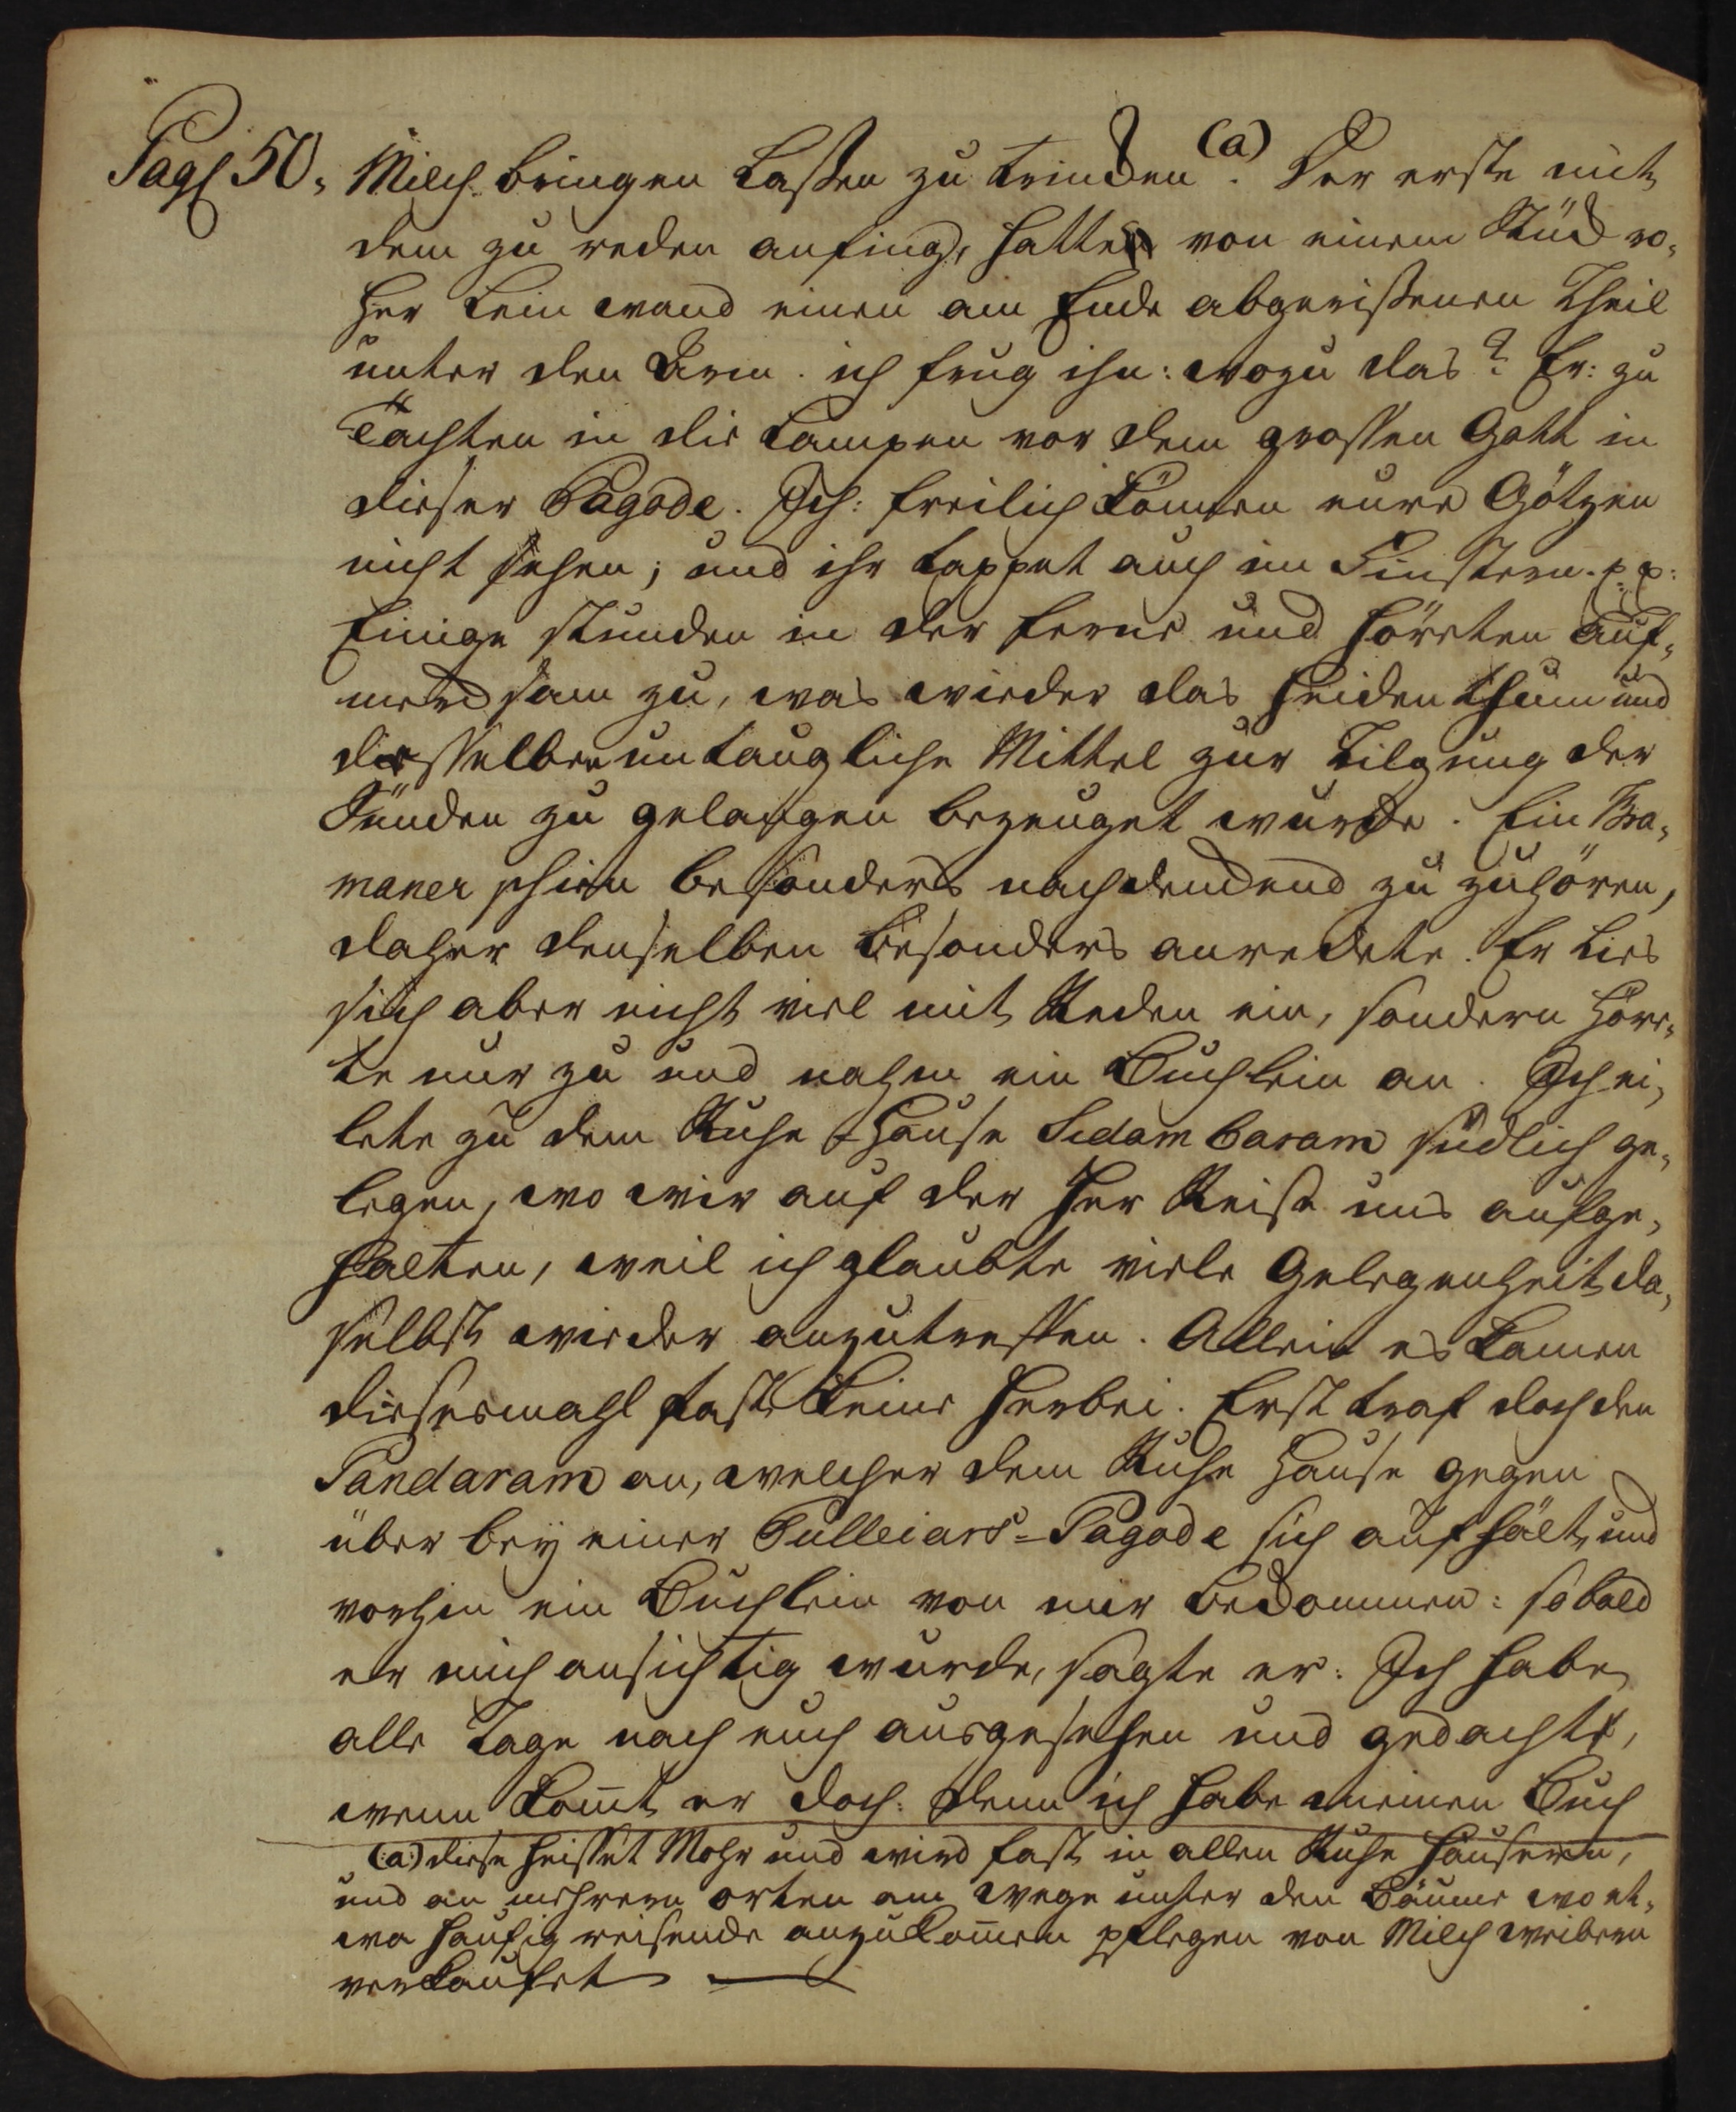 Pag. 50. Milch bringen laßen zu trincken (a). Der erste mit
dem zu reden anfing, hatte von einem Stück ro-
her Leinwand einen am Ende abgerißenen Theil
unter den Arm. ich frug ihn: wozu das? Er: zu
Tachten in die Lampen vor dem grossen Gott in
dieser Pagode. Ich: freilich können eure Götzen
nicht sehen; und ihr tappet auch im Finstern. p. p.
Einige stunden in der ferne und höreten auf-
mercksam zu, was wieder das Heidenthum und
desselben untaugliche Mittel zur Tilgung der
Sünden zu gelangen bezeuget wurde. Ein Bra-
maner schien besonders nachdenckend zu zuhören,
daher denselben besonders anredete. Er lies
sich aber nicht viel mit Reden ein, sondern höre-
te nur zu und nahm ein Buchlein an. Ich ei-
lete zu dem Ruhe Hause Sidambaram südlich ge-
legen, wo wir auf der Her Reise uns aufge-
halten, weil ich glaubte viele Gelegenheit da-
selbst wieder anzutreffen. Allein es kamen
diesesmahl fast keine herbei. Erst traf doch den
Pandaram an, welcher dem Ruhe Hause gegen
über beÿ einer Pulleiars-Pagode sich aufhält, und
vorhin ein Buchlein von mir bekommen: sobald
er mich ansichtig wurde, sagte er: Ich habe
alle Tage nach euch ausgesehen und gedacht,
wenn kom̄t er doch: denn ich habe meinen Buch
(a) diese heisset Mohr und wird fast in allen Ruhe Häusern,
und an mehrern orten am Wege unter den Bäume wo et-
wa häufig reisende anzukom̄en pflegen von Milch weibern
verkaufet